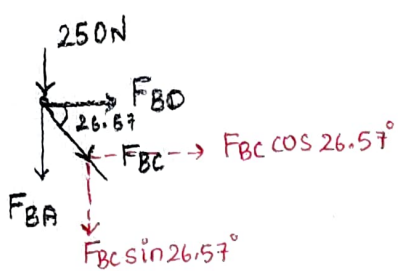 250N
F_BD
26.57
F_BC
F_BC cos 26.57°
F_BA
F_BC sin 26.57°